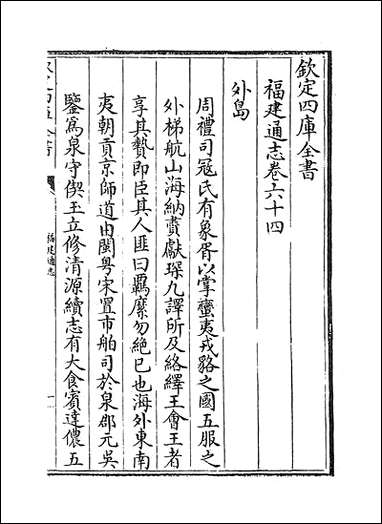 欽定四庫全書
福建通志卷六十四
外島
周禮司冦氏有象胥以掌蠻夷戎貉之國五服之
外梯航山海納賮獻琛九譯所及絡繹王會王者
享其贄即臣其人匪曰羈縻勿絶已也海外東南
夷朝貢京師道由閩粤宋置市舶司於泉郡元吳
鑒為泉守偰玉立修清源續志有大食賓達儂五
福建通志
一